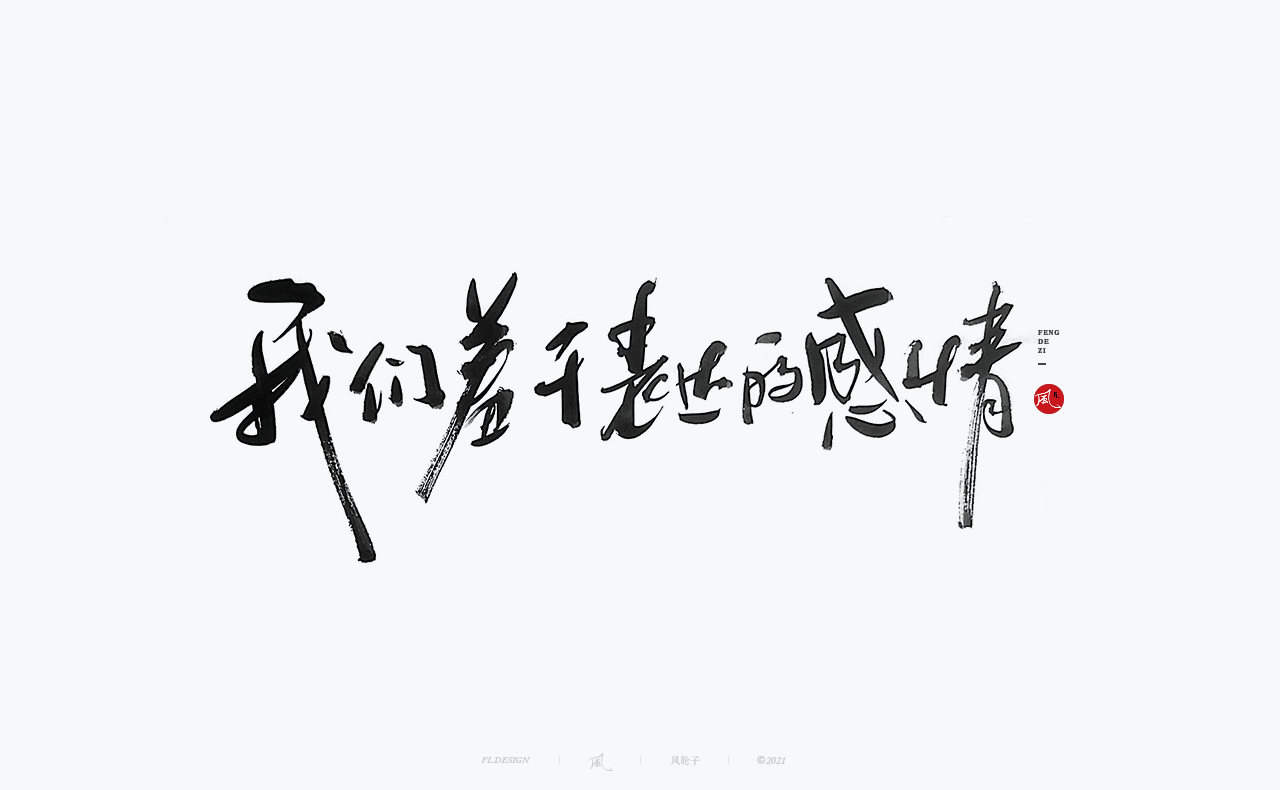 我们羞于表达的感情
FENG
DE
ZI
風
FL.DESIGN
風
风轮子
©2021